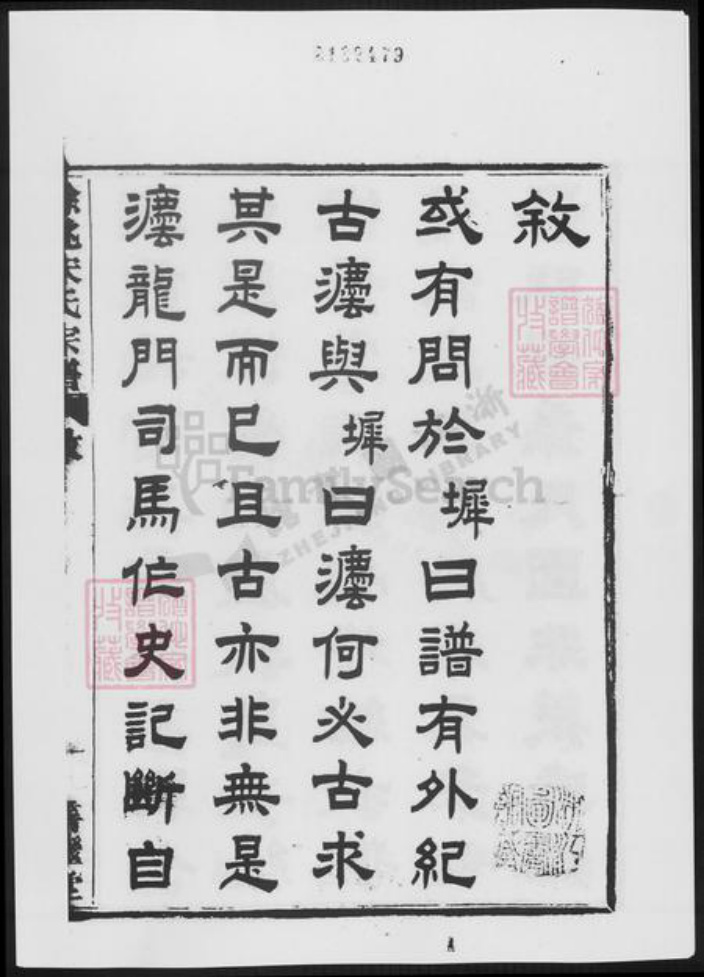 敘
或有問於墀曰譜有外紀
古灋與墀曰灋何必古求
其是而已且古亦非無是
灋龍門司馬作史記斷自
宋氏宗譜
FamilySearch